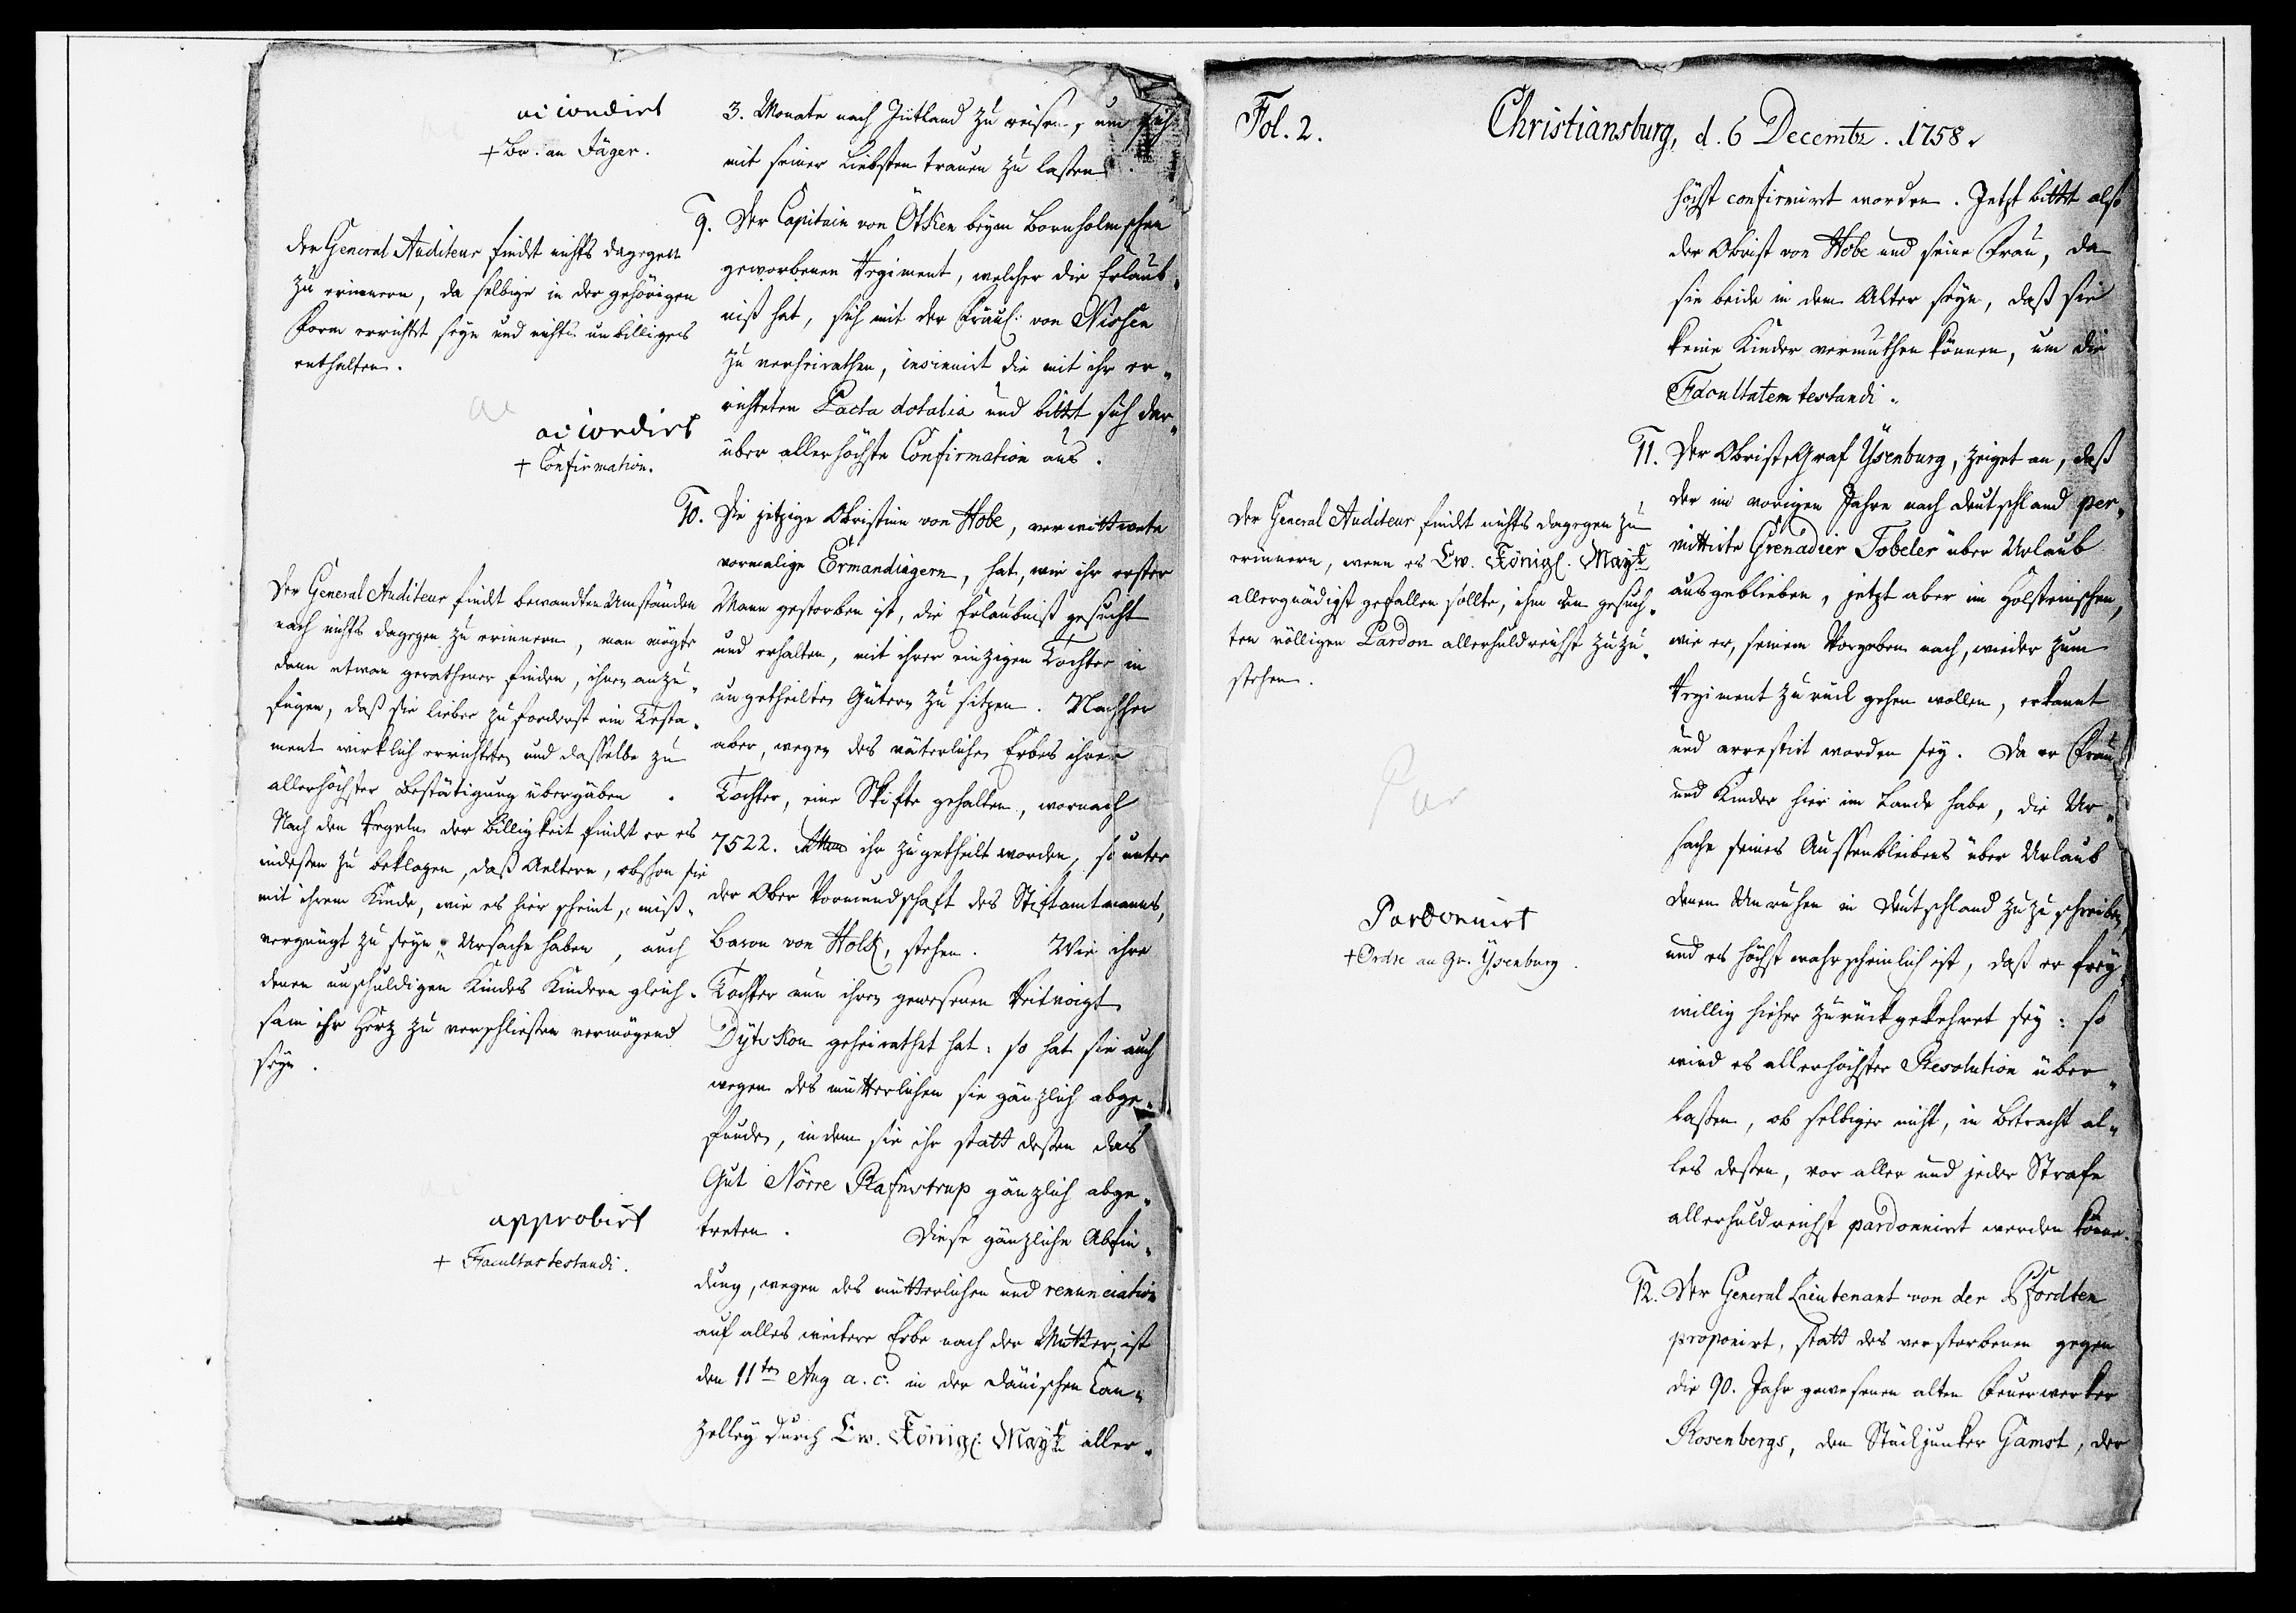 accordirt
+ Br. an Jäger.
Der General Auditeur findt nichts dagegen
zu erinnern, da selbige in der gehörigen
Form errichtet seyn und nichts unbilliges
enthalten.
accordirt
+ Confirmation.
Der General Auditeur findt bewandten Umständen
nach nichts dagegen zu erinnern, man mögte
denn etwan gerathener finden, ihnen anzu-
fügen, daß sie lieber zuforderst ein Testa-
ment wirklich errichteten und dasselbe zu
allerhöchster Bestätigung übergäben.
Nach den Regeln der Billigkeit findt er es
indeßen zu beklagen, daß Aeltern, obschon sie
mit ihrem Kinde, wie es hier scheint, miß-
vergnügt zu seyn, Ursache haben, auch
denen unschuldigen Kindes Kindern gleich-
sam ihr Herz zu verschließen vermögend
seyn.
approbirt
+ Facultas testandi.
3. Monate nach Jütland zu reisen, um sich
mit seiner Liebsten trauen zu laßen.
9. Der Capitain von Ötken beym Bornholmschen
geworbenen Regiment, welcher die Erlaub-
niß hat, sich mit der Fräul: von Nissen
zu verheirathen, insinuirt die mit ihr er-
richteten Pacta dotalia und bittt sich dar-
über allerhöchste Confirmation aus.
10. Die jetzige Obristinn von Hobe, verwittwete
vormalige Ermandingern, hat, wie ihr erster
Mann gestorben ist, die Erlaubniß gesucht
und erhalten, mit ihrer einzigen Tochter in
ungetheilten Gütern zu sitzen. Nachher
aber, wegen des väterlichen Erbes ihrer
Tochter, eine Skifte gehalten, wornach
7522. ihr zugetheilt worden, so unter
der Ober Vormundschaft des Stiftamtmanns,
Baron von Holck, stehen. Wie ihre
Tochter nun ihren gewesenen Reitvoigt
geheirathet hat: so hat sie auch
wegen des mütterlichen sie gänzlich abge-
funden, indem sie ihr statt deßen das
Gut Nörre Rafnstrup gänzlich abge-
treten. Diese gänzliche Abfin-
dung, wegen des mütterlichen und renunciation
auf alles weitere Erbe nach der Mutter, ist
den 11ten Aug a. c. in der Dänischen Can-
zelley durch Ew. Königl: Mayt aller-
Fol. 2.
Christiansburg, d. 6 Decembr. 1758.
Der General Auditeur findt nichts dagegen zu
erinnern, wenn es Ew. Königl. Mayt
allergnädigst gefallen sollte, ihm den gesuch-
ten völligen Pardon allerhuldreichst zuzu-
stehen.
Par
Pardonnirt
+ Ordre an Gr. Ysenburg.
höchst confirmirt worden. Jetzt bittt also
der Obrist von Hobe und seine Frau, da
sie beide in dem Alter seyn, daß sie
keine Kinder vermuthen können, um die
Facultatem testandi.
11. Der Obrist, Graf Ysenburg, zeiget an, daß
der im vorigen Jahre nach Deutschland per-
mittirte Grenadier Tobeler über Urlaub
ausgeblieben, jetzt aber im Holsteinischen,
wie er, seinem Vorgeben nach, wieder zum
Regiment zurück gehen wollen, erkannt
und arrestirt worden sey. Da er Frau
und Kinder hier im Lande habe, die Ur-
sache seines Aussenbleibens über Urlaub
denen Unruhen in Deutschland zuzuschreiben
und es höchst wahrscheinlich ist, daß er frey-
willig hieher zurückgekehret sey: so
wird es allerhöchster Resolution über-
laßen, ob selbiger nicht, in Betracht al-
les deßen, vor aller und jeder Strafe
allerhuldreichst pardonnirt werden könne.
12. Der General Lieutenant von der Pfordten
proponirt, statt des verstorbenen gegen
die 90. Jahr gewesenen alten Feuerwerker
Rosenbergs, den Stückjunker Gamst, der